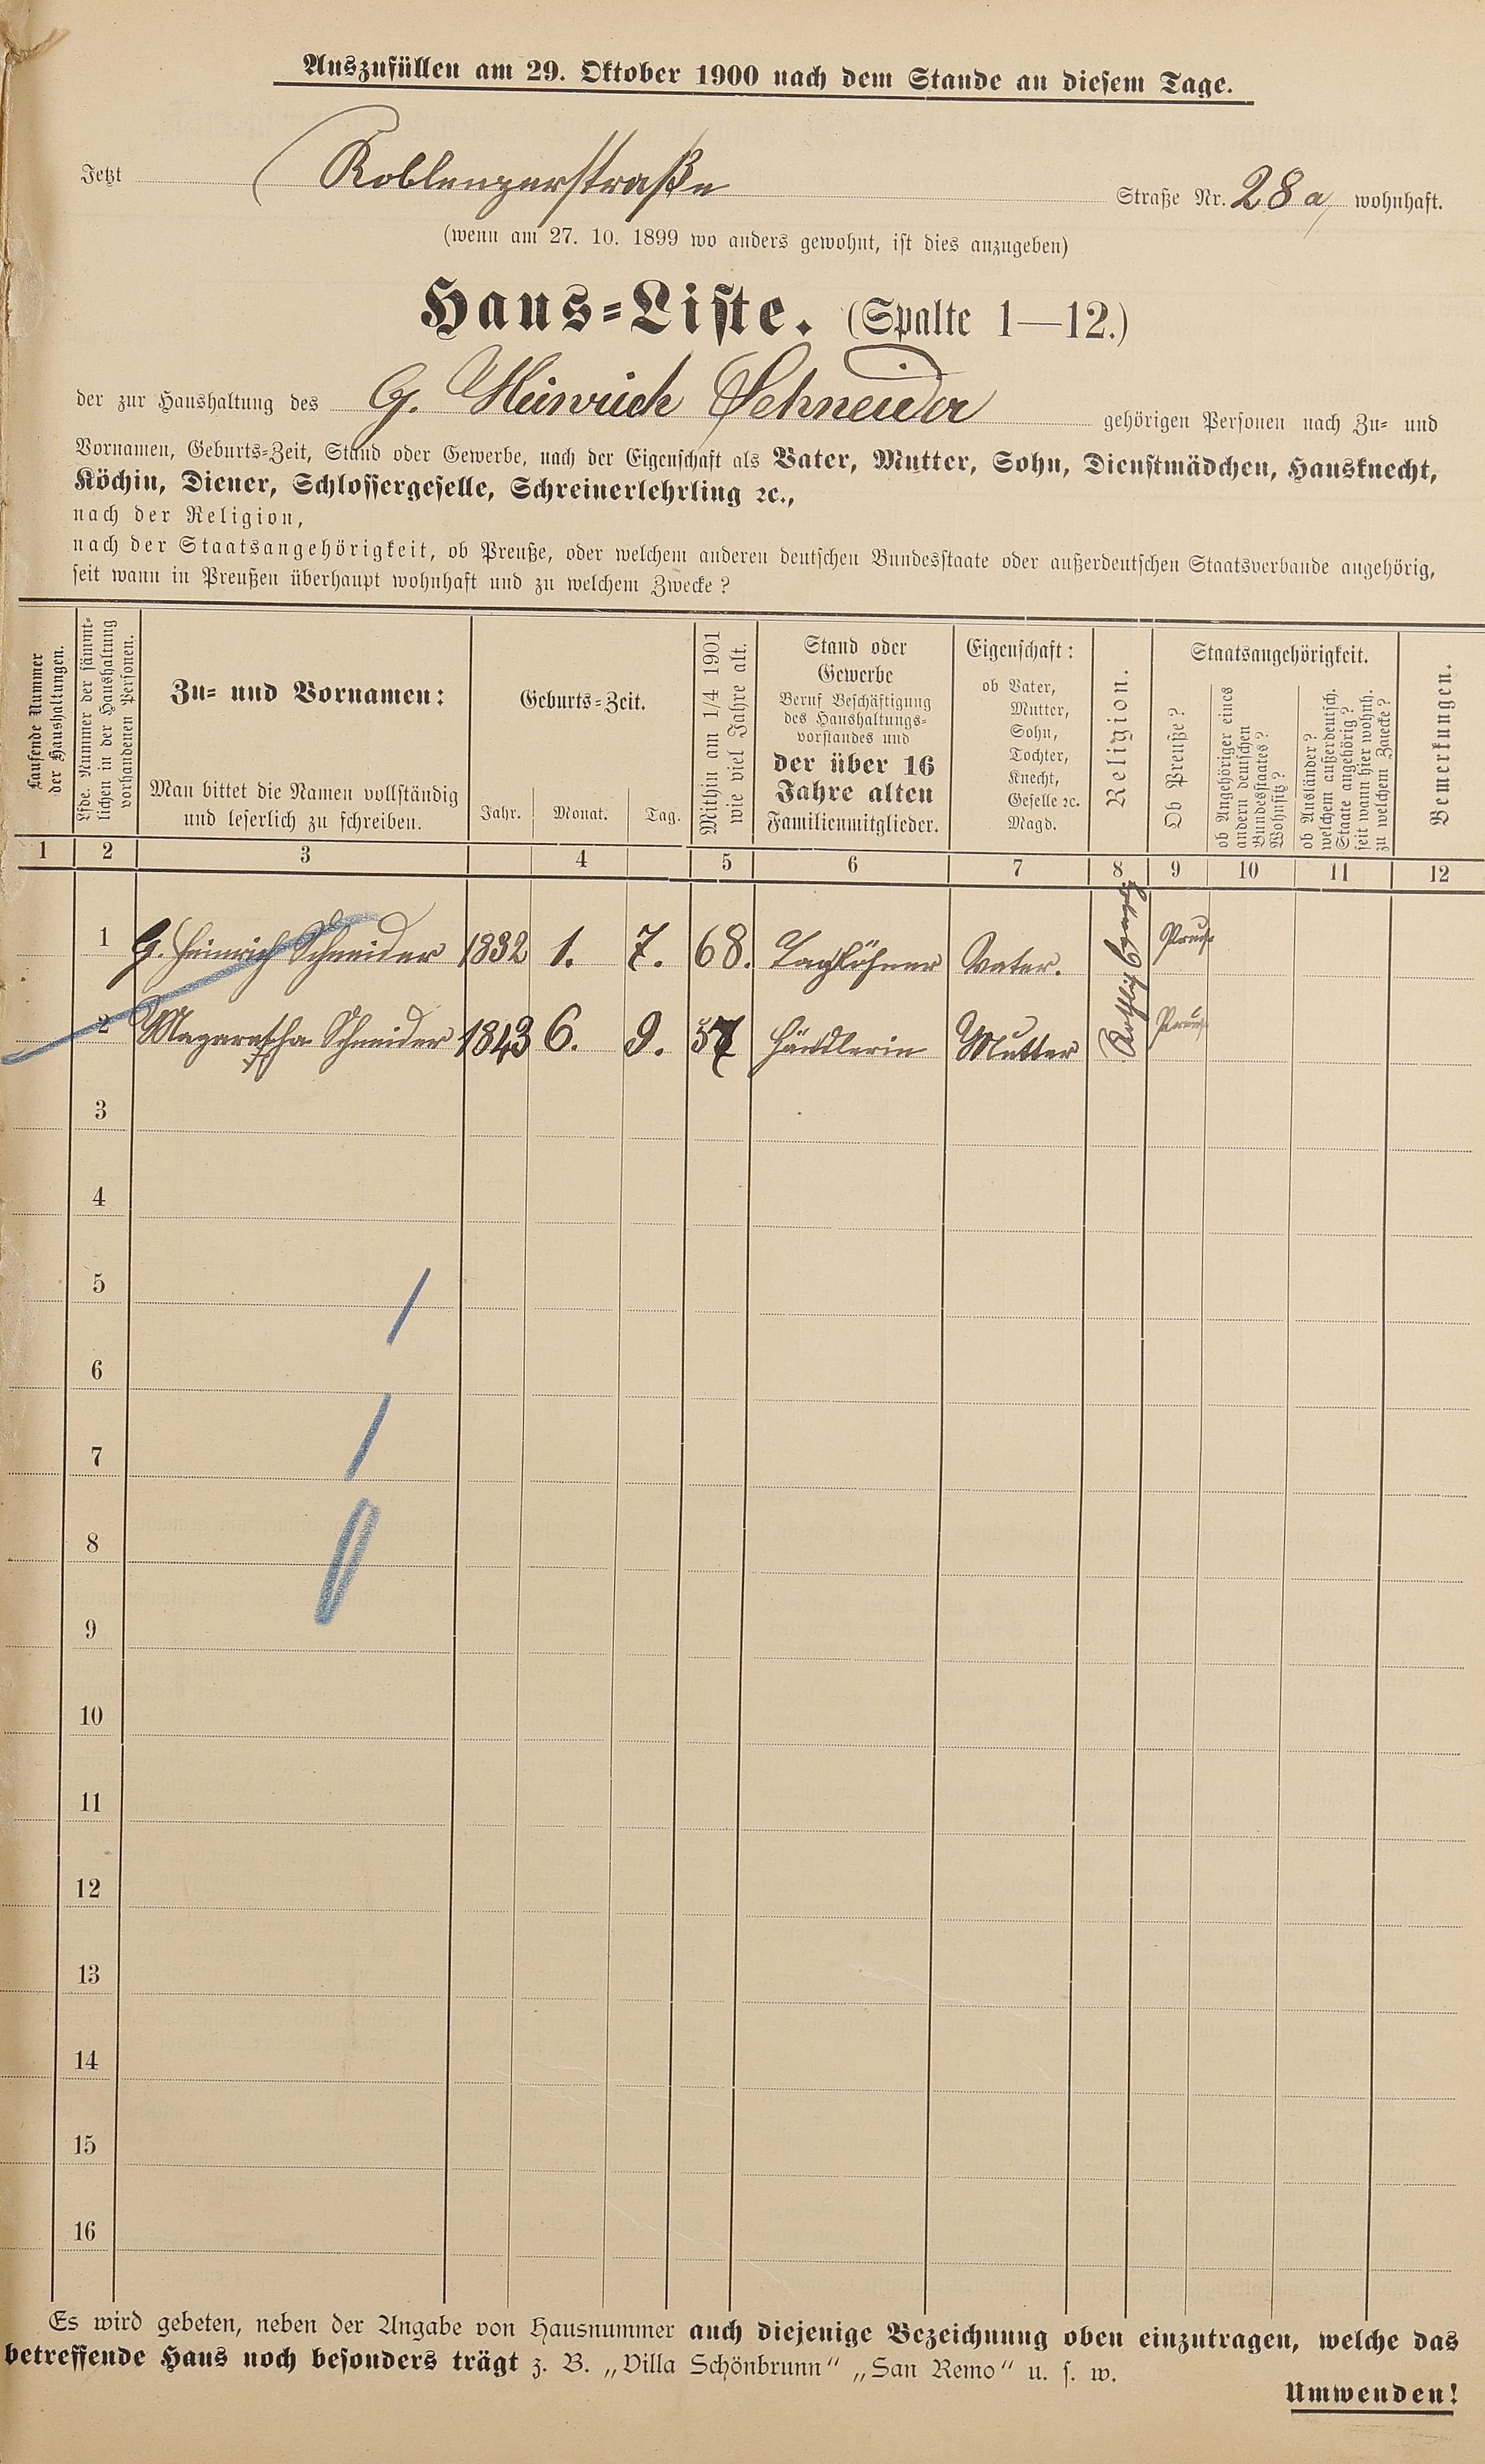 Auszufüllen am 29. Oktober 1900 nach dem Stande an diesem Tage.
Jetzt Koblenzerstraße Straße Nr. 28a wohnhaft.
(wenn am 27. 10. 1899 wo anders gewohnt, ist dies anzugeben)
Haus-Liste. (Spalte 1—12.)
der zur Haushaltung des G. Heinrich Schneider gehörigen Personen nach Zu- und
Vornamen, Geburts-Zeit, Stand oder Gewerbe, nach der Eigenschaft als Vater, Mutter, Sohn, Dienstmädchen, Hausknecht,
Köchin, Diener, Schlossergeselle, Schreinerlehrling ꝛc.,
nach der Religion,
nach der Staatsangehörigkeit, ob Preuße, oder welchem anderen deutschen Bundesstaate oder außerdeutschen Staatsverbande angehörig,
seit wann in Preußen überhaupt wohnhaft und zu welchem Zwecke?
Laufende Nummer
der Haushaltungen.
Lfde. Nummer der sämmt-
lichen in der Haushaltung
vorhandenen Personen.
Zu- und Vornamen:
Man bittet die Namen vollständig
und leserlich zu schreiben.
Geburts-Zeit.
Jahr. Monat. Tag.
Mithin am 1/4 1901
wie viel Jahre alt.
Stand oder
Gewerbe
Beruf Beschäftigung
des Haushaltungs-
vorstandes und
der über 16
Jahre alten
Familienmitglieder.
Eigenschaft:
ob Vater,
Mutter,
Sohn,
Tochter,
Knecht,
Geselle ꝛc.
Magd.
Religion.
Staatsangehörigkeit.
Ob Preuße?
ob Angehöriger eines
andern deutschen
Bundesstaates?
Wohnsitz?
ob Ausländer?
welchem außerdeutsch.
Staate angehörig?
seit wann hier wohnh.
zu welchem Zwecke?
Bemerkungen.
1 2 3 4 5 6 7 8 9 10 11 12
1 G. Heinrich Schneider 1832 1. 7. 68. Taglöhner Vater.
2 Schneider 1843 6. 9. 57 Händlerin Mutter
3
4
5
6
7
8
9
10
11
12
13
14
15
16
Es wird gebeten, neben der Angabe von Hausnummer auch diejenige Bezeichnung oben einzutragen, welche das
betreffende Haus noch besonders trägt z. B. „Villa Schönbrunn“ „San Remo“ u. s. w.
Umwenden!